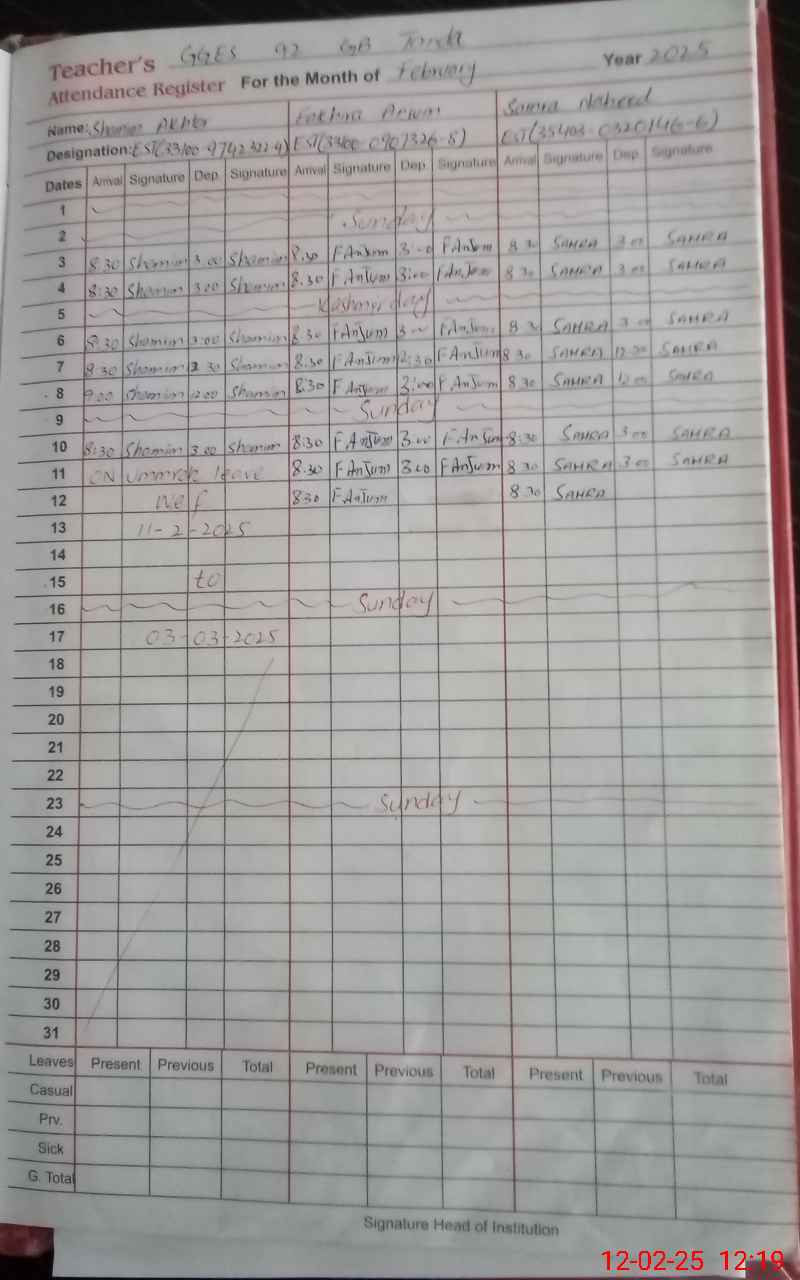 Teacher's GGES 92 GB
Attendance Register For the Month of February Year 2025
Name: Shamim Akhter Anjum Samra Naheed
Designation: EST(33100-9742322-4) EST(33100-0907326-8) EST(35403-0320146-6)
Dates Arrival Signature Dep. Signature Arrival Signature Dep. Signature Arrival Signature Dep. Signature
1
2 Sunday
3 8:30 Shamim 3.00 Shamim 8.30 FAnjum 3:00 FAnjum 8 30 SAMRA 3 00 SAMRA
4 8:30 Shamim 3.00 Shamim 8.30 FAnjum 3:00 FAnjum 8 30 SAMRA 3 00 SAMRA
5 Kashmir day
6 8:30 Shamim 3:00 Shamim 8 30 FAnjum 3:00 FAnjum 8 30 SAMRA 3 00 SAMRA
7 8 30 Shamim 30 Shamim 8.30 FAnjum 30 FAnjum 8 30 SAMRA 12 30 SAMRA
8 9:00 Shamim 12:00 Shamim 8:30 FAnjum 3:00 FAnjum 8 30 SAMRA 12 00 SAMRA
9 Sunday
10 8:30 Shamim 3.00 Shamim 8:30 FAnjum 3:00 FAnjum 8:30 SAMRA 3 00 SAMRA
11 ON Ummrah leave 8.30 FAnjum 3:00 FAnjum 8 30 SAMRA 3 00 SAMRA
12 wef 830 FAnjum 8 30 SAMRA
13 11-2-2025
14
15 to
16 Sunday
17 03-03-2025
18
19
20
21
22
23 Sunday
24
25
26
27
28
29
30
31
Leaves Present Previous Total Present Previous Total Present Previous Total
Casual
Prv.
Sick
G. Total
Signature Head of Institution
12-02-25 12:19